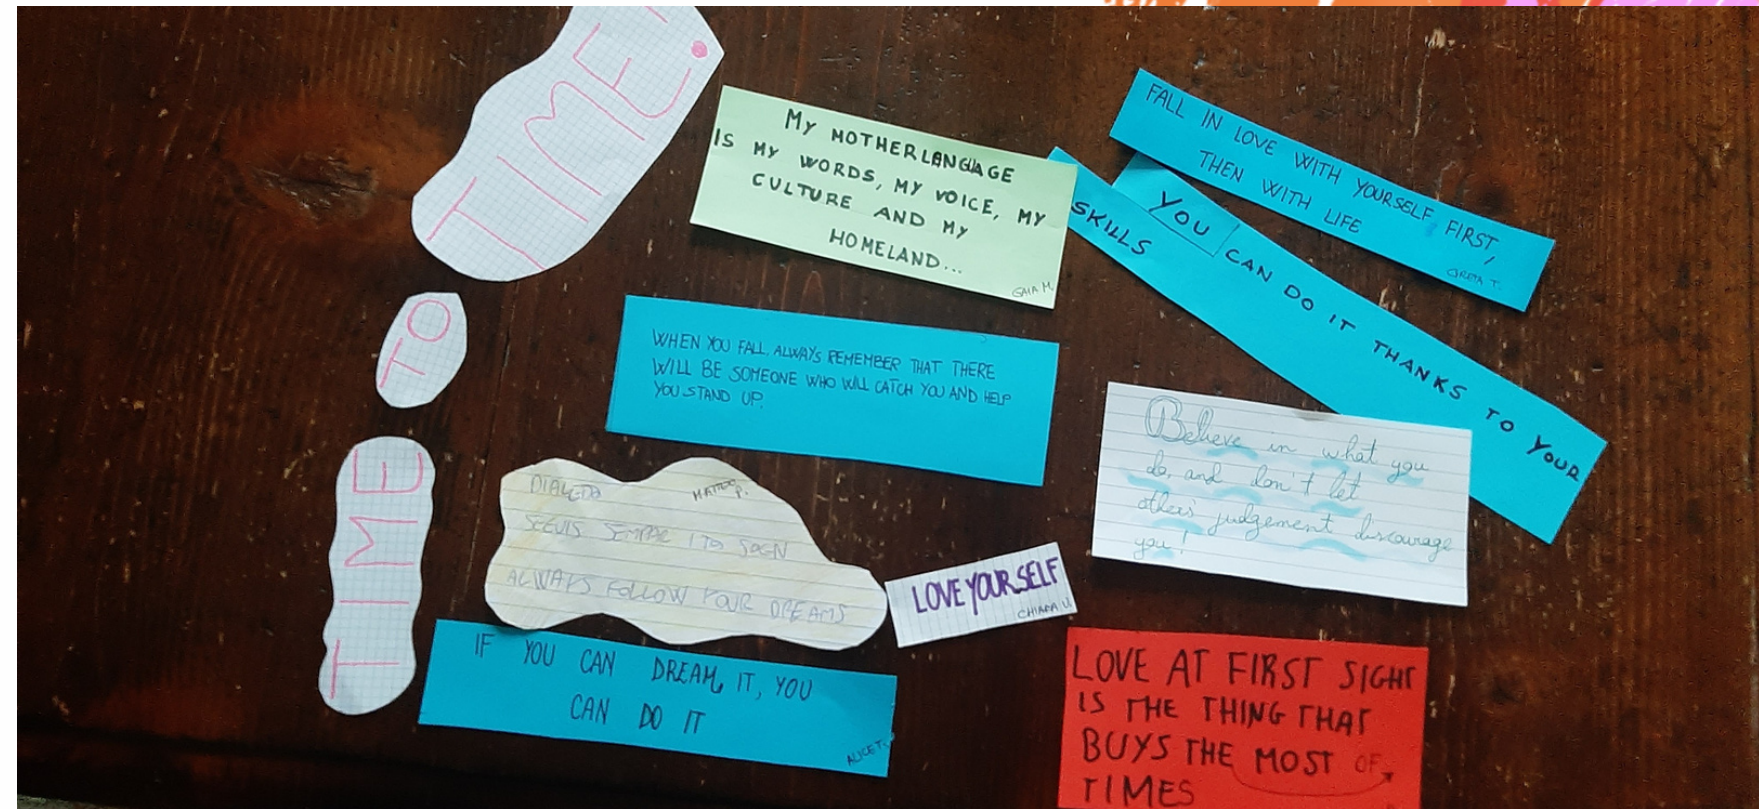 TIME
TO
TIME.
MY MOTHERLANGUAGE
IS MY WORDS, MY VOICE, MY
CULTURE AND MY
HOMELAND...
GAIA M.
FALL IN LOVE WITH YOURSELF FIRST,
THEN WITH LIFE
GRETA T.
YOU CAN DO IT THANKS TO YOUR
SKILLS
WHEN YOU FALL, ALWAYS REMEMBER THAT THERE
WILL BE SOMEONE WHO WILL CATCH YOU AND HELP
YOU STAND UP.
Believe in what you
do, and don't let
others' judgement discourage
you!
MATTEO P.
SEMPAR I TO SOGN
ALWAYS FOLLOW YOUR DREAMS
LOVE YOURSELF
CHIARA U.
IF YOU CAN DREAM IT, YOU
CAN DO IT
ALICE T.
LOVE AT FIRST SIGHT
IS THE THING THAT
BUYS THE MOST OF
TIMES